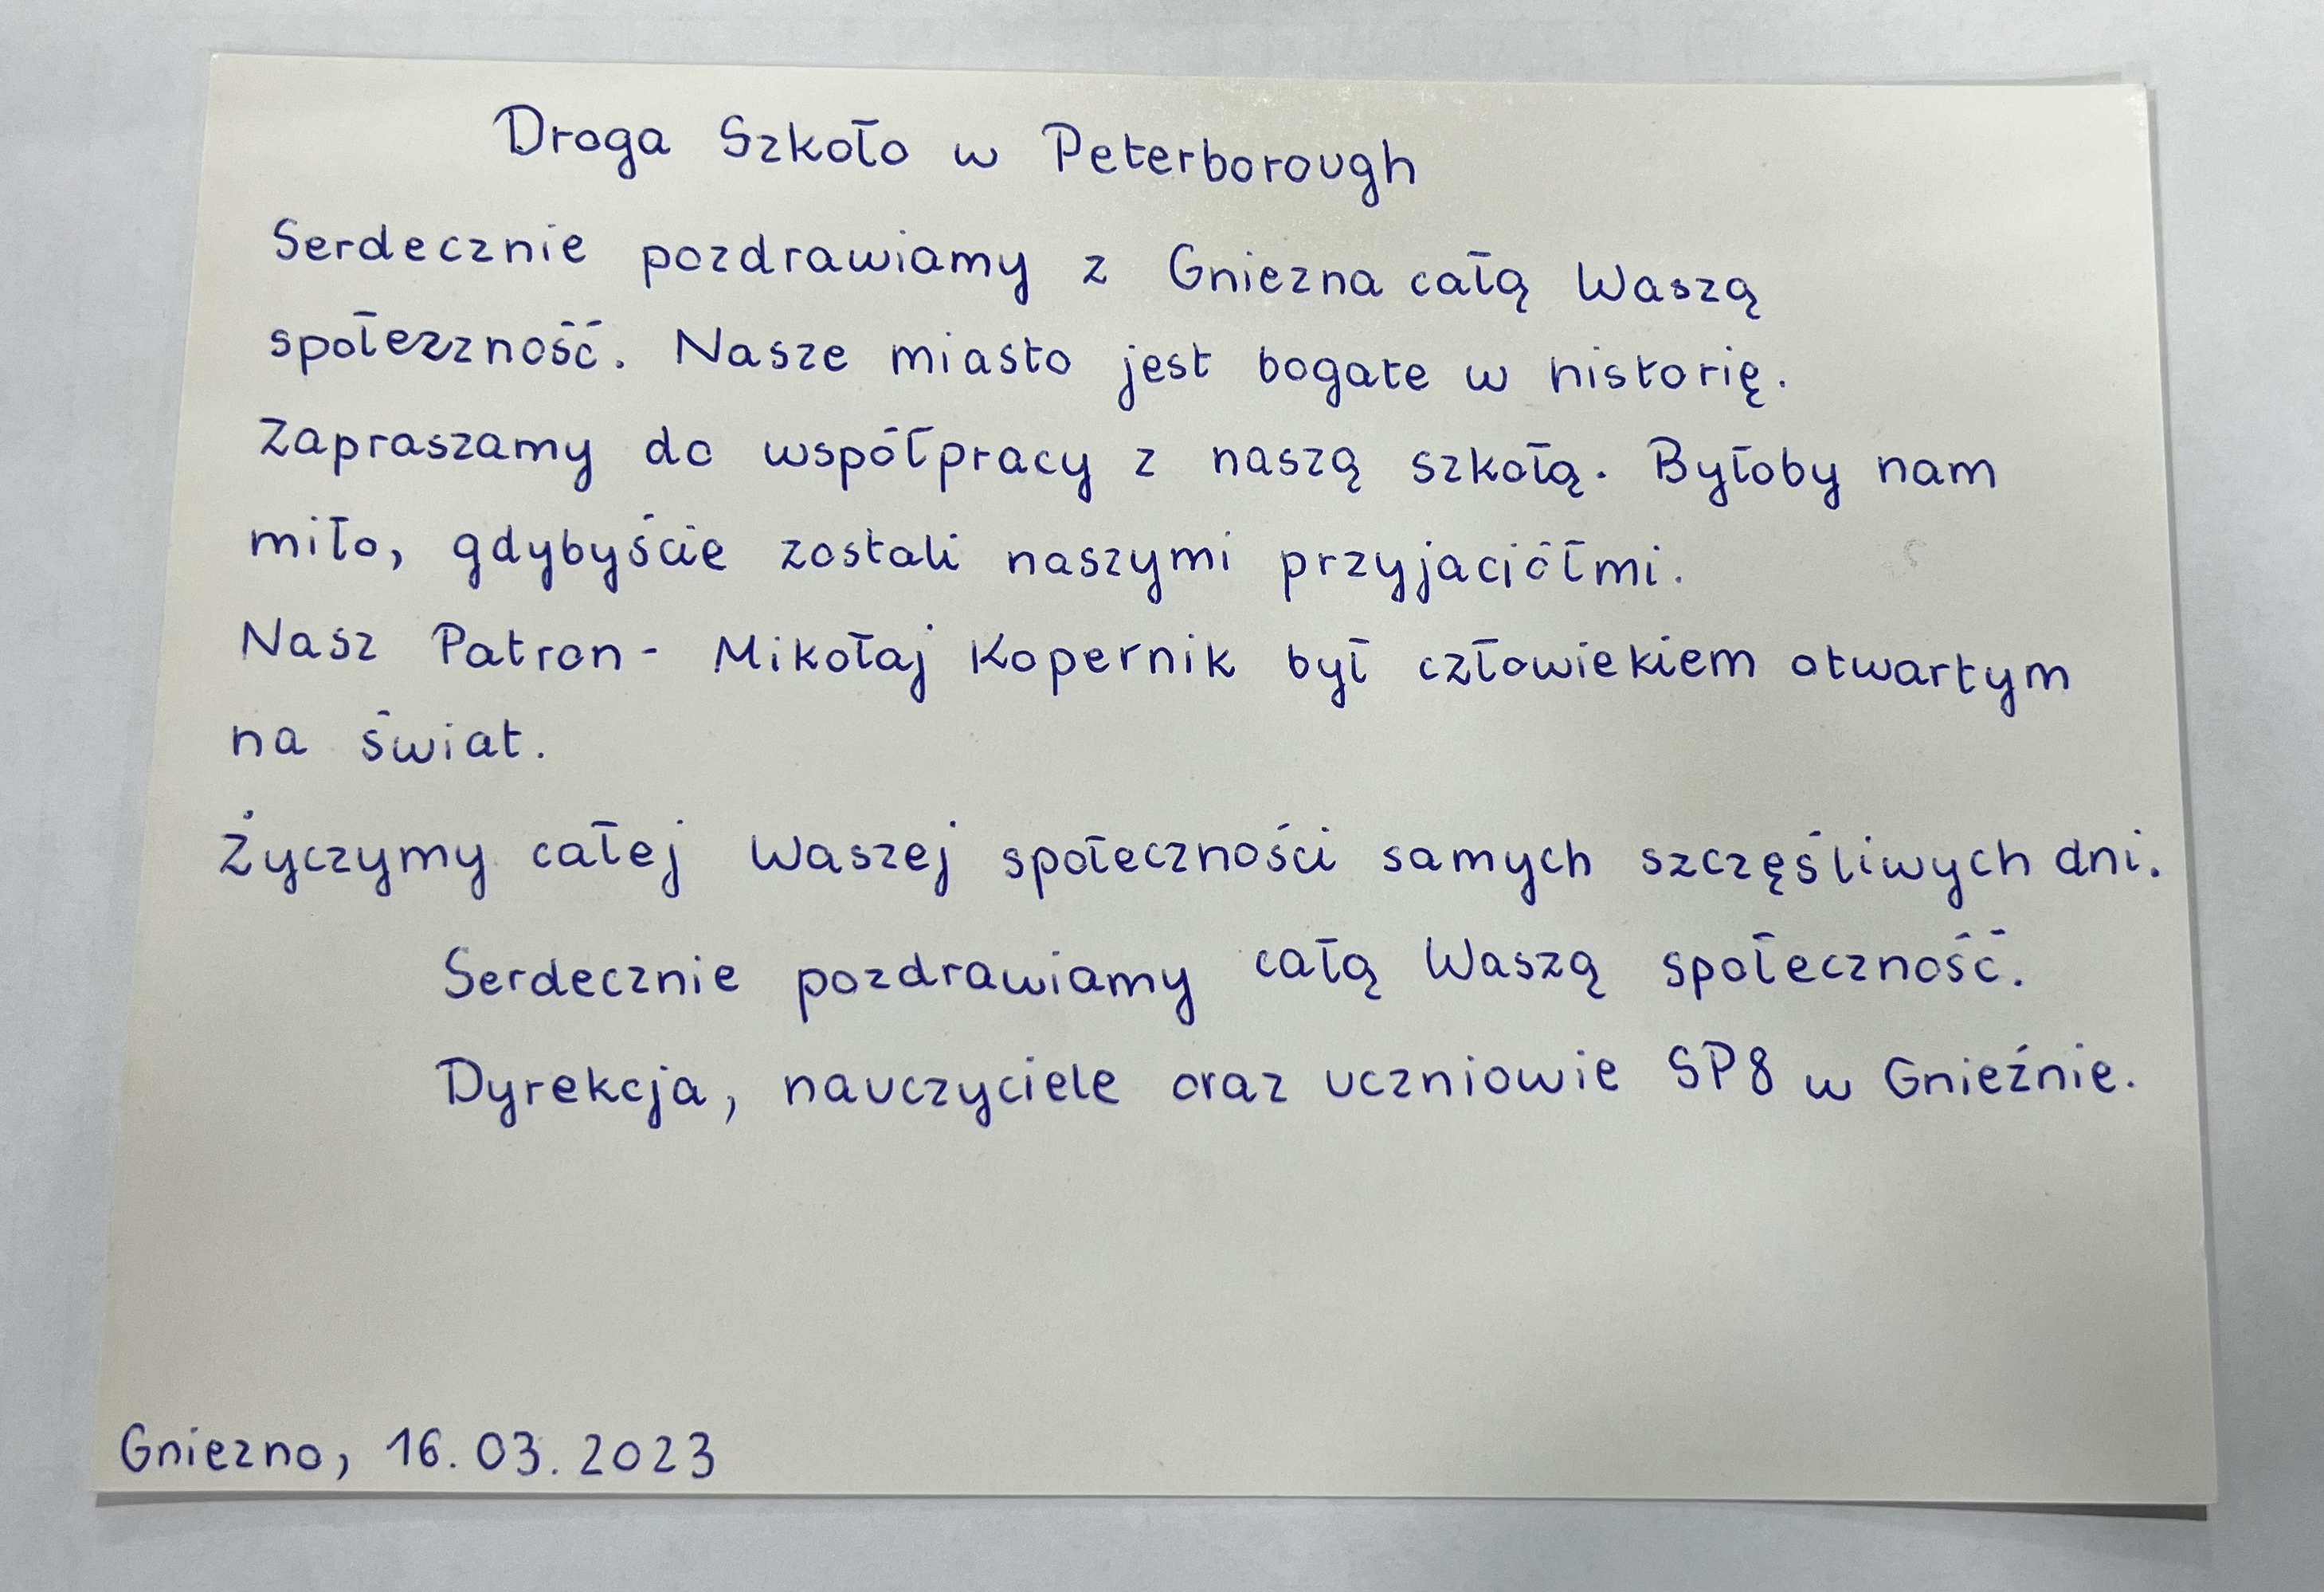 Droga Szkoło w Peterborough
Serdecznie pozdrawiamy z Gniezna całą Waszą
społeczność. Nasze miasto jest bogate w historię.
Zapraszamy do współpracy z naszą szkołą. Byłoby nam
miło, gdybyście zostali naszymi przyjaciółmi.
Nasz Patron - Mikołaj Kopernik był człowiekiem otwartym
na świat.
Życzymy całej Waszej społeczności samych szczęśliwych dni.
Serdecznie pozdrawiamy całą Waszą społeczność.
Dyrekcja, nauczyciele oraz uczniowie SP8 w Gnieźnie.
Gniezno, 16.03.2023